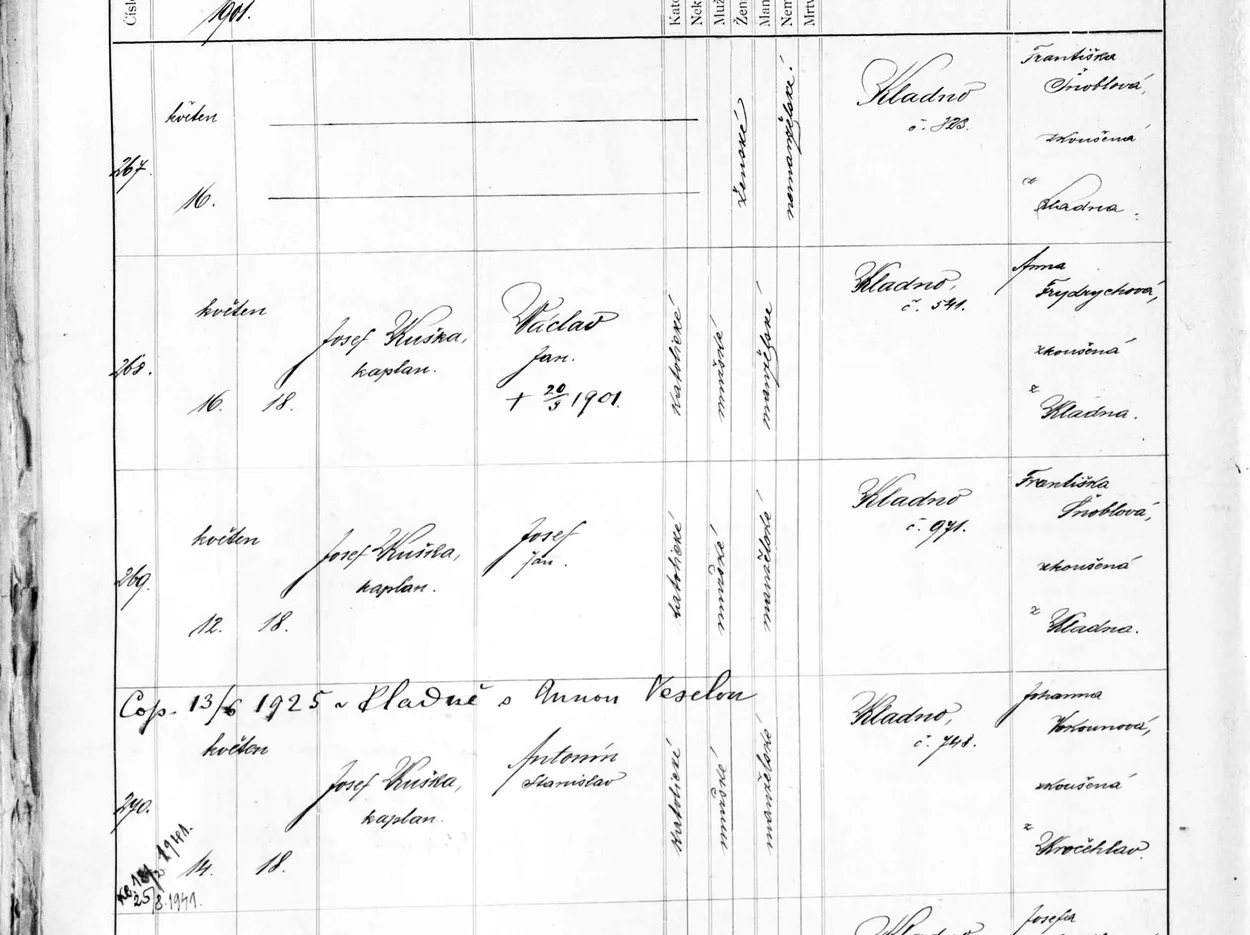 Čísl
1901.
Kato
Nek
Muž
Žen
Man
Nem
Mrtv
267.
květen
16.
ženské
nemanželské!
Kladno
č. 323.
Františka
Šnoblová,
zkoušená
z
Kladna.
268.
květen
16. 18.
Josef Kuška,
kaplan.
Václav
Jan.
+ 20/5 1901.
katolické
mužské
manželské
Kladno,
č. 541.
Anna
Frydrychová,
zkoušená
z
Kladna.
269.
květen
12. 18.
Josef Kuška,
kaplan.
Josef
Jan.
katolické
mužské
manželské
Kladno
č. 971.
Františka
Šnoblová,
zkoušená
z
Kladna.
Cop. 13/6 1925 v Kladně s Annou Veselou
270.
květen
14. 18.
Josef Kuška,
kaplan.
Antonín
Stanislav
katolické
mužské
manželské
Kladno,
č. 748.
Johanna
Vokounová,
zkoušená
z
Kročehlav.
1941.
25/8.1941.
Kladno
Josefa